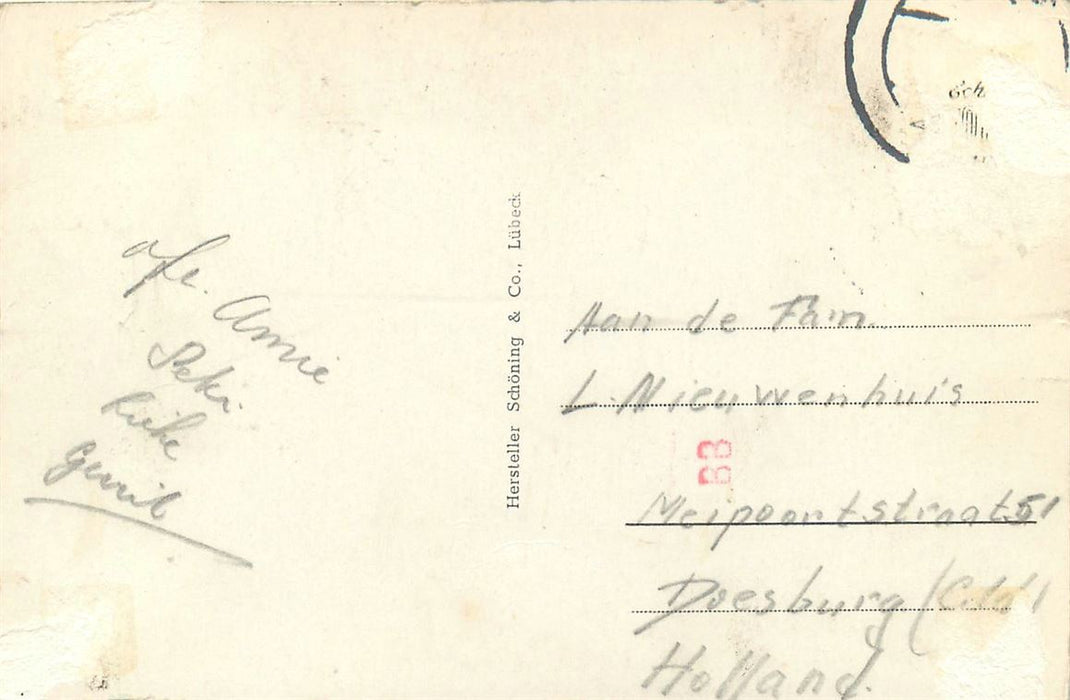 afz. Annie
Rike
Gerrit
Hersteller Schöning & Co., Lübeck
Aan de Fam.
L. Nieuwenhuis
BB
Meipoortstraat 51
Doesburg (Gld)
Holland.